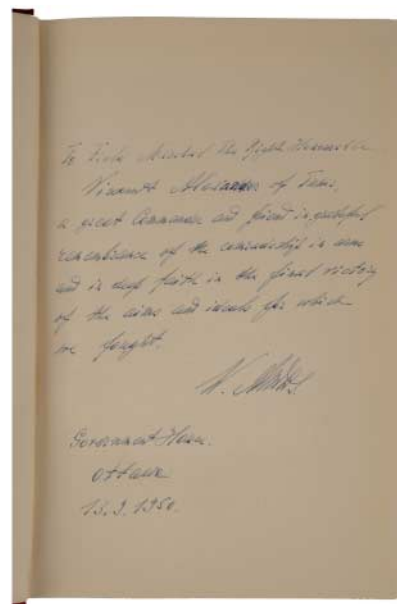 To Field Marshal The Right Honourable
Viscount Alexander of Tunis,
a great Commander and friend in grateful
remembrance of the comradeship in arms
and in deep faith in the final victory
of the aims and ideals for which
we fought.
W. Anders
Government House.
Ottawa
13.9.1950.